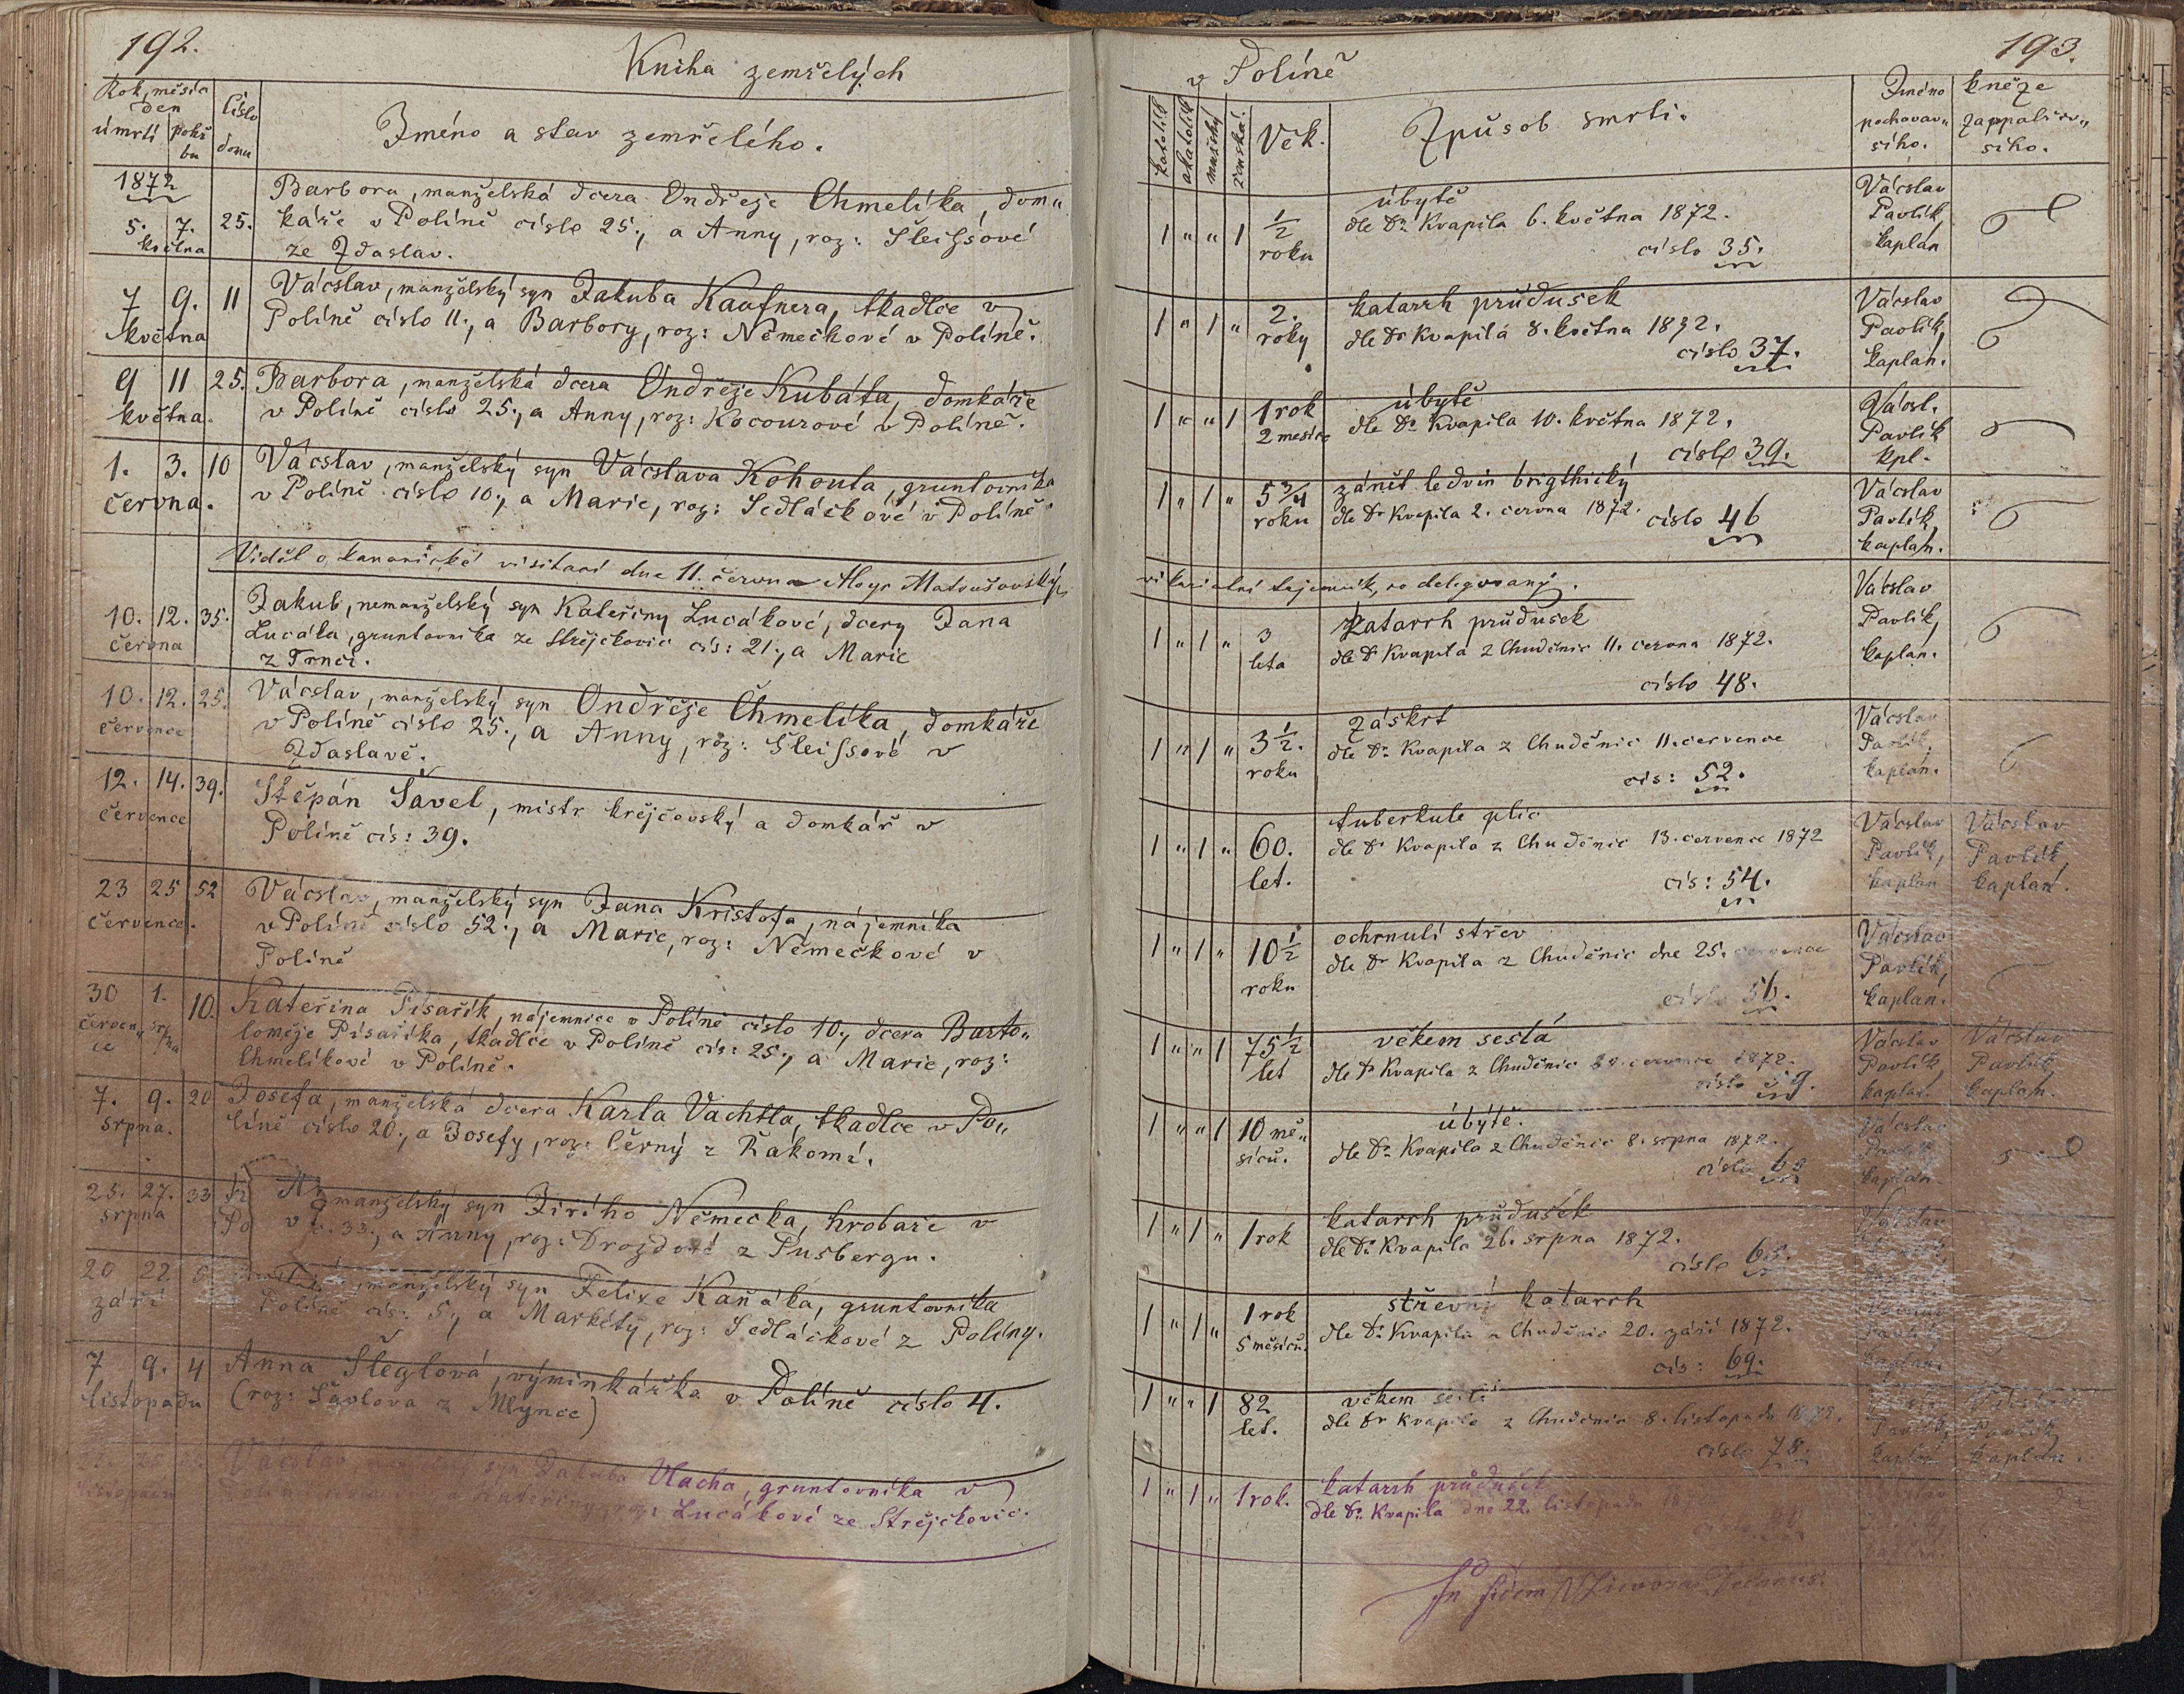 192.
Kniha zemřelých
Rok, měsíc
den
úmrtí pohř
bu
číslo
domu
Jméno a stav zemřelého.
1872
5. 7. 25.
května
Barbora, manželská dcera Ondřeje Chmelíka, dom„
káře v Políně číslo 25., a Anny, roz: Sleissové
ze Zdaslav.
7 9. 11
května
Vácslav, manželský syn Jakuba Kaufnera, tkadlce v
Políně číslo 11., a Barbory, roz: Němečkové v Políně.
9 11 25.
května.
Barbora, manželská dcera Ondřeje Kubáta, domkáře
v Políně číslo 25., a Anny, roz: Kocourové v Políně.
1. 3. 10
června.
Vácslav, manželský syn Vácslava Kohouta, gruntovníka
v Políně číslo 10., a Marie, roz: Sedláčkové v Políně.
Viděl o kanonické visitaci dne 11. června Aloys Matoušovský,
10. 12. 35.
června
Jakub, nemanželský syn Kateřiny Lucákové, dcery Jana
Lucáka, gruntovníka ze Strejčkovic čís: 21., a Marie
z Trnčí.
10. 12. 25.
července
Vácslav, manželský syn Ondřeje Chmelíka, domkáře
v Políně číslo 25., a Anny, roz: Sleissové v
Zdaslavě.
12. 14. 39.
července
Štěpán Šavel, mistr krejčovský a domkář v
Políně čís: 39.
23 25 52
července.
Vácslav, manželský syn Jana Kristofa, nájemníka
v Políně číslo 52., a Marie, roz: Němečkové v
Políně
30 1. 10.
červen„ srpna
ce
Kateřina Pisařík, nájemnice v Políně číslo 10., dcera Barto„
loměje Pisaříka, tkadlce v Políně čís: 25., a Marie, roz:
Chmelíkové v Políně.
7. 9. 20
srpna.
Josefa, manželská dcera Karla Vachtla, tkadlce v Po„
líně číslo 20., a Josefy, roz: Černý z Řakomi.
25. 27. 33
srpna
manželský syn Jiřího Němečka, hrobaře v
Po v č. 33., a Anny, roz: Drozdové z Pusbergu.
20 22 5
září
manželský syn Felixe Kaňáka, gruntovníka
Políně čís: 5., a Markéty, roz: Sedláčkové z Políny.
7 9. 4
listopadu
Anna Šleglová, výminkářka v Políně číslo 4.
(roz: Šavlova z Mlynce)
Vácslav syn Jakuba Vlacha, gruntovníka v
listopadu
Kateřiny, roz: Lucákové ze Strejčkovic.
v Políně
193.
katolík
akatolík
mužský
ženská
Věk.
Způsob smrti.
Jméno kněze
pochovav„ zaopatřiv„
šího. šího.
1 „ „ 1 ½
roku
úbytě
dle Dr. Kvapila 6. května 1872.
číslo 35.
Vácslav
Pavlík,
kaplan
1 „ 1 „ 2.
roky
katarrh průdušek
dle Dr Kvapila 8. května 1872.
číslo 37.
Vácslav
Pavlík,
kaplan.
1 „ „ 1 1 rok
2 mesíce
úbytě
dle Dr. Kvapila 10. května 1872.
číslo 39.
Vácsl.
Pavlík
kpl.
1 „ 1 „ 5 ¾
roku
zánět ledvin brigthický
dle Dr Kvapila 2. června 1872.
číslo 46
Vácslav
Pavlík,
kaplan.
vikariatní tajemník, co delegovaný.
1 „ 1 „ 3
leta
Katarrh průdušek
dle Dr Kvapila z Chuděnic 11. června 1872.
číslo 48.
Vácslav
Pavlík,
kaplan.
1 „ 1 „ 3 ½.
roku
záškrt
dle Dr. Kvapila z Chuděnic 11. července
čís: 52.
Vácslav
Pavlík,
kaplan.
1 „ 1 „ 60.
let.
tuberkule plic
dle Dr Kvapila z Chuděnic 13. července 1872
čís: 54.
Vácslav Vácslav
Pavlík, Pavlík,
kaplan kaplan.
1 „ 1 „ 10 ½
roku
ochrnulí střev
dle Dr Kvapila z Chuděnic dne 25. července
číslo 56.
Vácslav
Pavlík,
kaplan.
1 „ „ 1 75 ½
let
věkem sešlá
dle Dr Kvapila z Chuděnic července 1872.
číslo 59.
Vácslav Vácslav
Pavlík, Pavlík,
kaplan. kaplan.
1 „ „ 1 10 mě„
síců.
úbytě.
dle Dr. Kvapila z Chuděnic 8. srpna 1872.
číslo
Vácslav
Pavlík
kaplan.
1 „ 1 „ 1 rok
katarrh průdušek
dle Dr. Kvapila 26. srpna 1872.
číslo 63.
1 „ 1 „ 1 rok
5 měsíců.
střevní katarrh
dle Dr. Kvapila z Chuděnic 20. září 1872.
čís: 69.
Pavlík
kaplan.
1 „ „ 1 82
let.
věkem sešlá
dle Dr Kvapila z Chuděnic 8. listopadu 1872.
číslo 78.
Pavlík, Pavlík,
kaplan kaplan.
1 „ 1 „ 1 rok.
katarrh průdušek
dle Dr. Kvapila dne 22. listopadu
In fidem